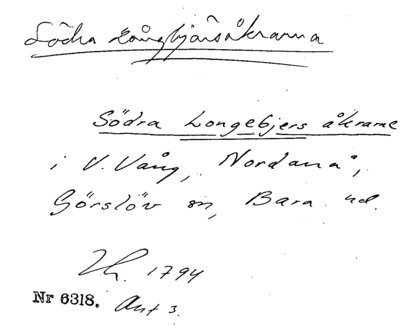 Södra Långbjärsåkrarna
Södra Longebjers åkrarne
i V. Vång, Nordanå,
Görslöv sn, Bara hd.
1794
Nr 6318. Akt 3.